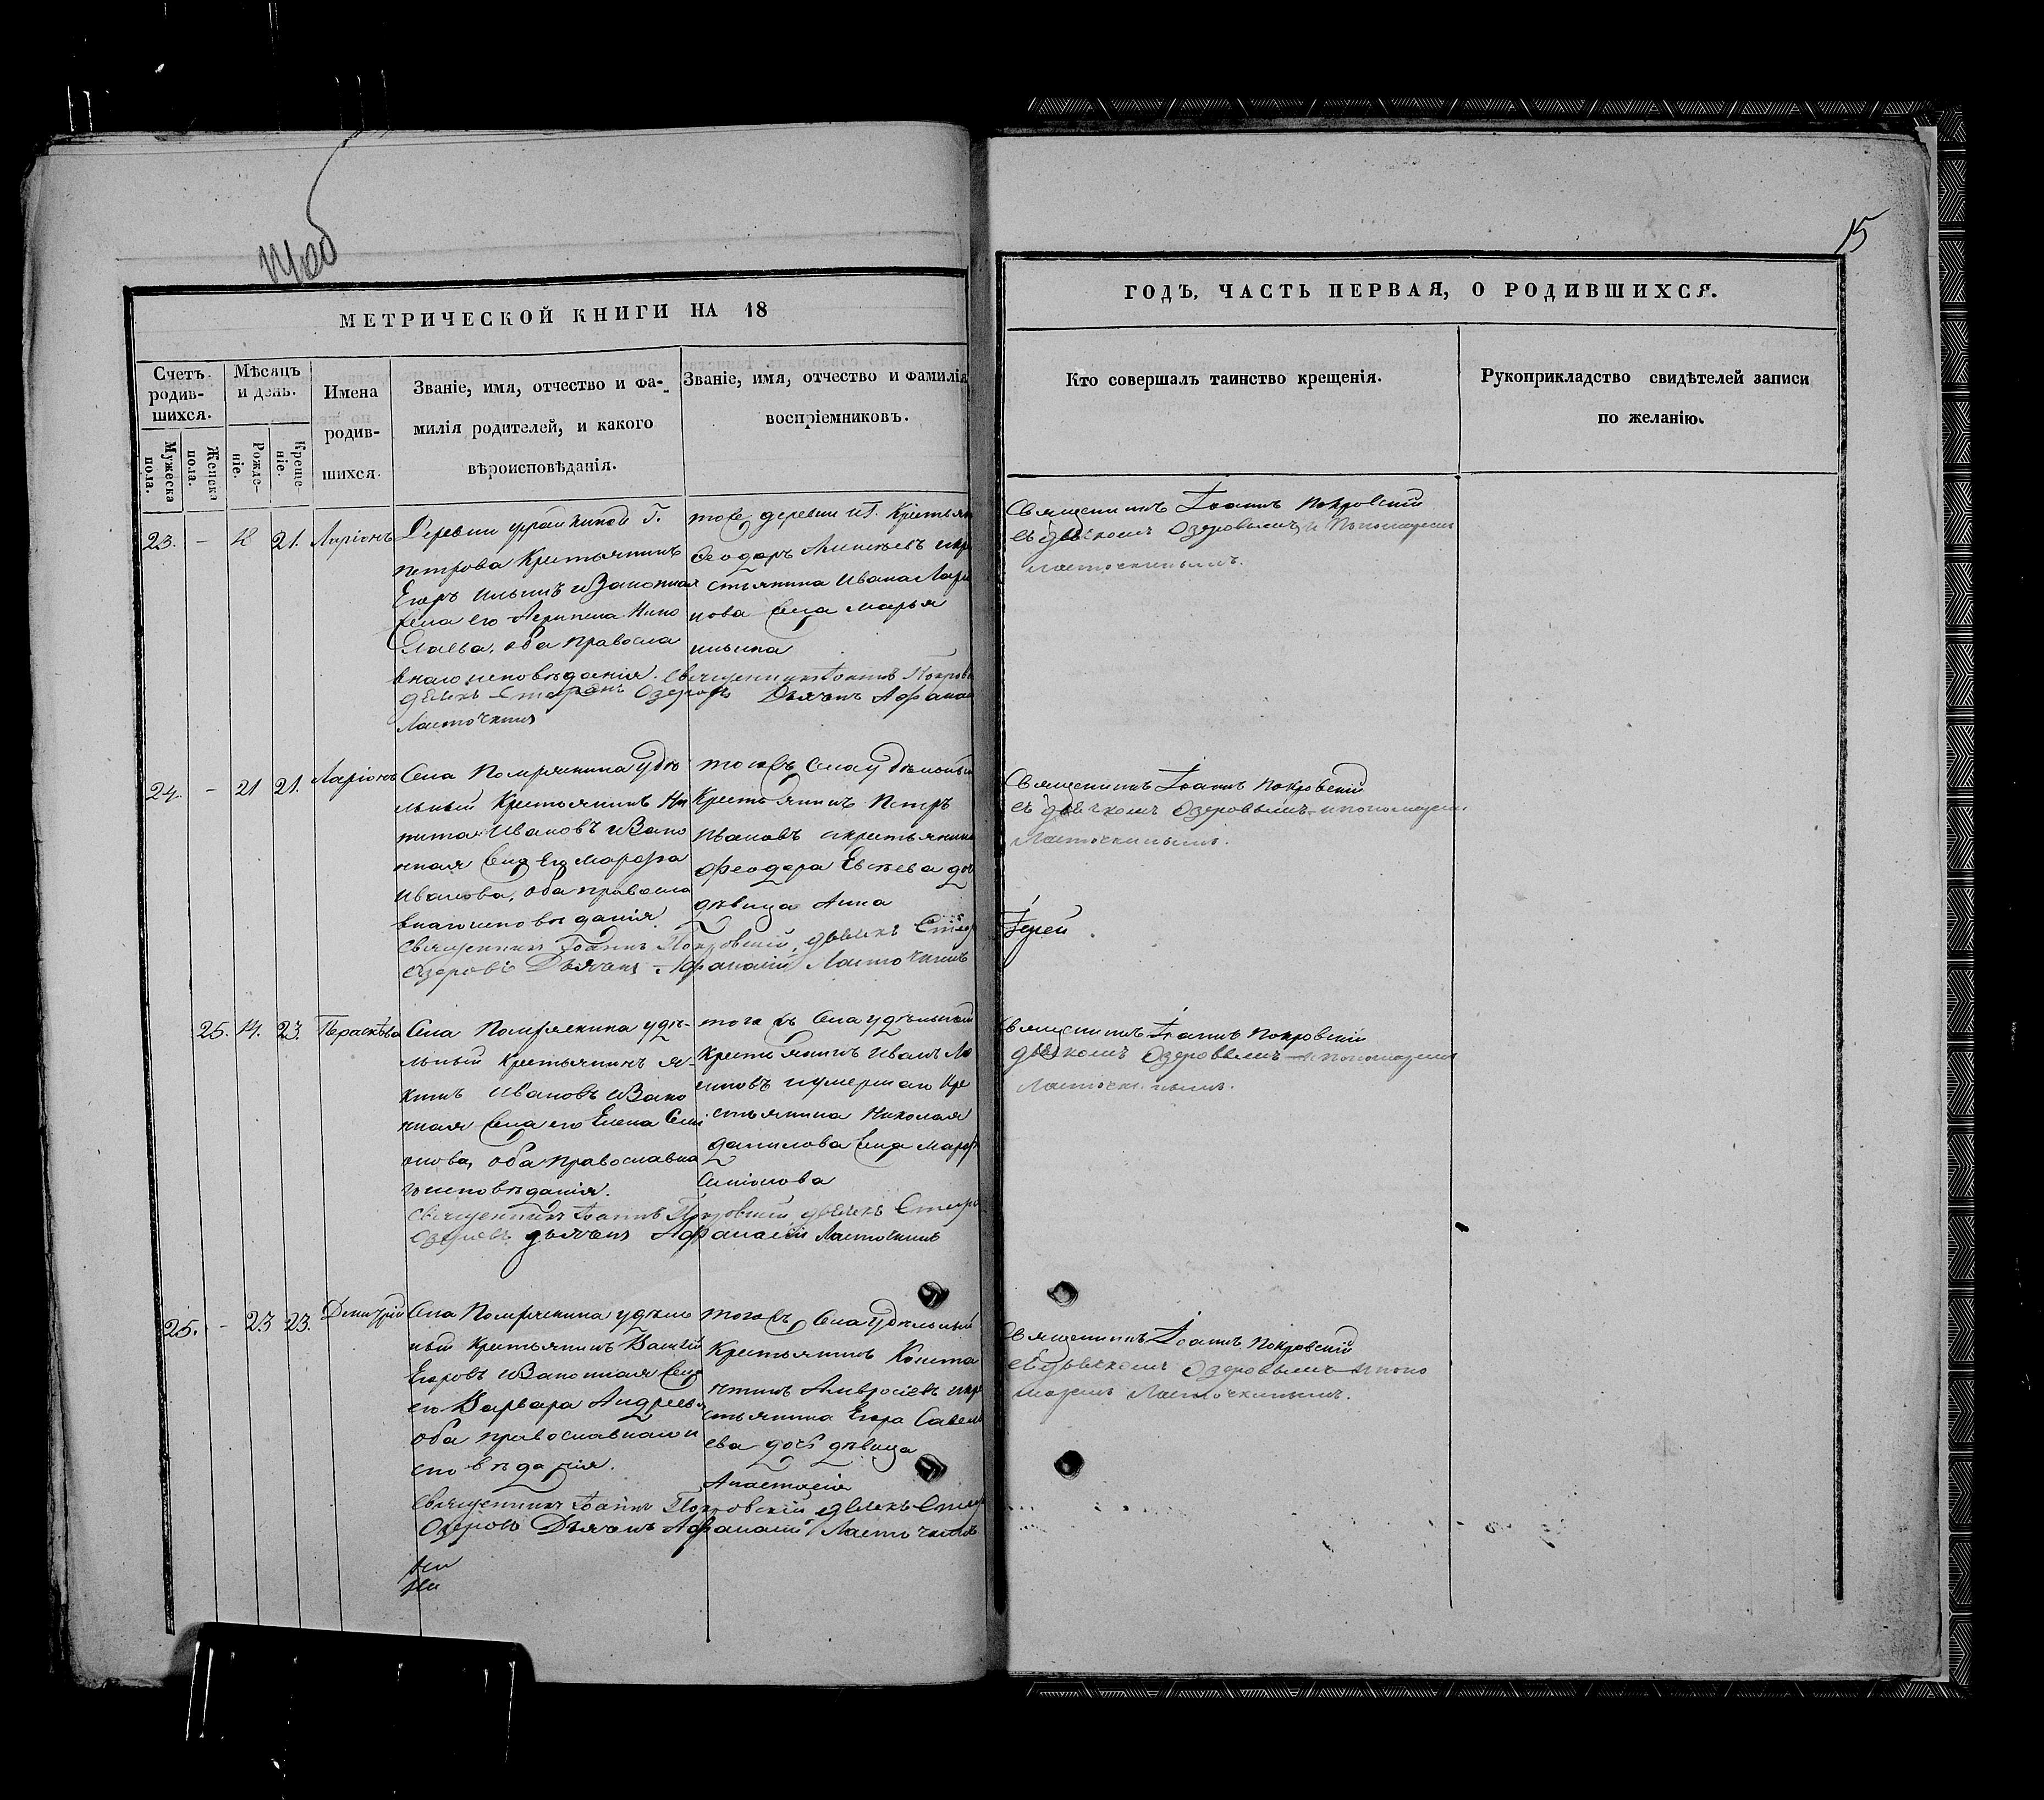 15
МЕТРИЧЕСКОЙ КНИГИ НА 18
ГОДЪ, ЧАСТЬ ПЕРВАЯ, О РОДИВШИХСЯ.
Счетъ родив-
шихся.
Мужеска пола.
Женска пола.
Мѣсяцъ и день.
Рожде-
ніе.
Креще-
ніе.
Имена
родив-
шихся.
Званіе, имя, отчество и фа-
милія родителей, и какого
вѣроисповѣданія.
Званіе, имя, отчество и фамилія
воспріемниковъ.
Кто совершалъ таинство крещенія.
Рукоприкладство свидѣтелей записи
по желанію.
23. - 21. Ларіонъ
Деревни Г.
петрова Крестьянинъ
Егоръ Ильинъ и Законная
жена его Агрипена Нико
лаева, оба правосла
внаго исповѣданія. Священникъ Іоаннъ Покров
Озеровъ Дьячекъ Афанас
Ласточкинъ
тоже деревни Г. Крестьян
Феодоръ икр
стьянина Ивана Лари
нова жена Марья
ильина
Священникъ Іоаннъ Покровскій
съ дьячкомъ Озеровымъ и Пономаремъ
Ласточкинымъ.
24. - 21 21. Ларіонъ
Села Помряскина удѣ
льный Крестьянинъ Ни
кита Ивановъ и Зако
нная жена его Марфа
Иванова, оба правосла
внаго исповѣданія.
Священникъ Іоаннъ Покровскій,
Озеровъ Дьячекъ Афанасій Ласточкинъ
тогожъ Села удѣльный
Крестьянинъ Петръ
Ивановъ икрестьянина
Феодора Евсѣева доч
дѣвица Анна
Священникъ Іоаннъ Покровскій
съ дьячкомъ Озеровымъ и пономаремъ
Ласточкинымъ.
Іерей
25. 23. Параскѣва
Села Помряскина удѣ-
льный Крестьянинъ Я-
кимъ Ивановъ и Зако
нная жена его Елена Сем
онова, оба православна
го исповѣданія.
Священникъ Іоаннъ Покровскій
Озеровъ дьячекъ Афанасій Ласточкинъ
тогожъ Села удѣльный
Крестьянинъ Иванъ
иумершаго Кре
стьянина Николая
данилова жена Марф
Священникъ Іоаннъ Покровскій
дьячкомъ Озеровымъ и пономаремъ
Ласточкинымъ.
25. - 23 23. Димитрій
Села Помряскина удѣль
ный Крестьянинъ Васілій
Егоровъ и Законная жена
его Варвара Андреева
оба православнаго и
сповѣданія.
Священникъ Іоаннъ Покровскій
Озеровъ Дьячекъ Афанасій Ласточкинъ
тогожъ Села удѣльный
Крестьянинъ Конста
нтинъ Амвросіевъ икре
стьянина Егора Савель
ева дочь дѣвица
Анастасія
Священникъ Іоаннъ Покровскій
съ дьячкомъ Озеровымъ и поно
маремъ Ласточкинымъ.